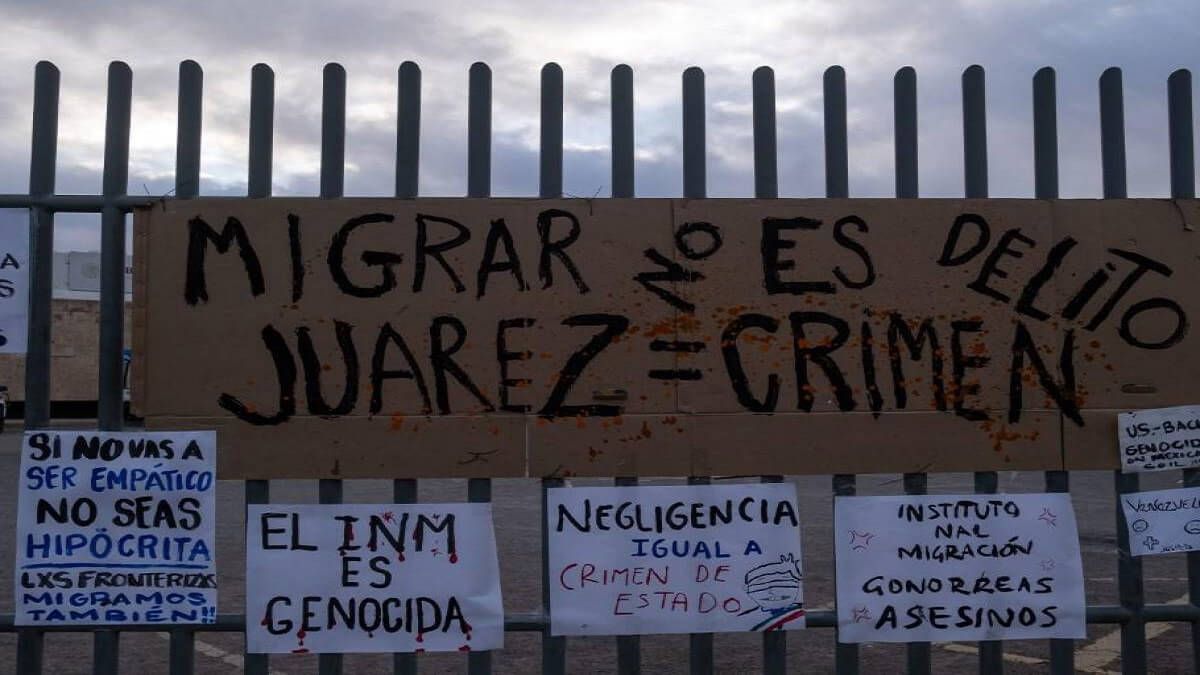 MIGRAR NO ES DELITO
JUAREZ = CRIMEN
A
S
SI NO VAS A
SER EMPÁTICO
NO SEAS
HIPÓCRITA
LXS FRONTERIZXS
MIGRAMOS
TAMBIÉN!!
EL INM
ES
GENOCIDA
NEGLIGENCIA
IGUAL A
CRIMEN DE
ESTADO
INSTITUTO
NAL
MIGRACIÓN
GONORREAS
ASESINOS
US.-BAC
GENOCID
ON MEXICA
SOIL
VENEZUEL